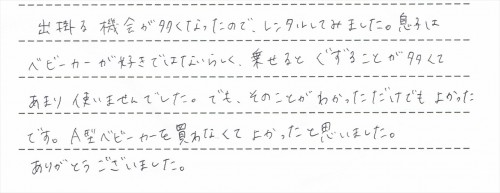 出掛る機会が多くなったので、レンタルしてみました。息子は
ベビーカーが好きではないらしく、乗せるとぐずることが多くて
あまり使いませんでした。でも、そのことがわかっただけでもよかった
です。A型ベビーカーを買わなくてよかったと思いました。
ありがとうございました。